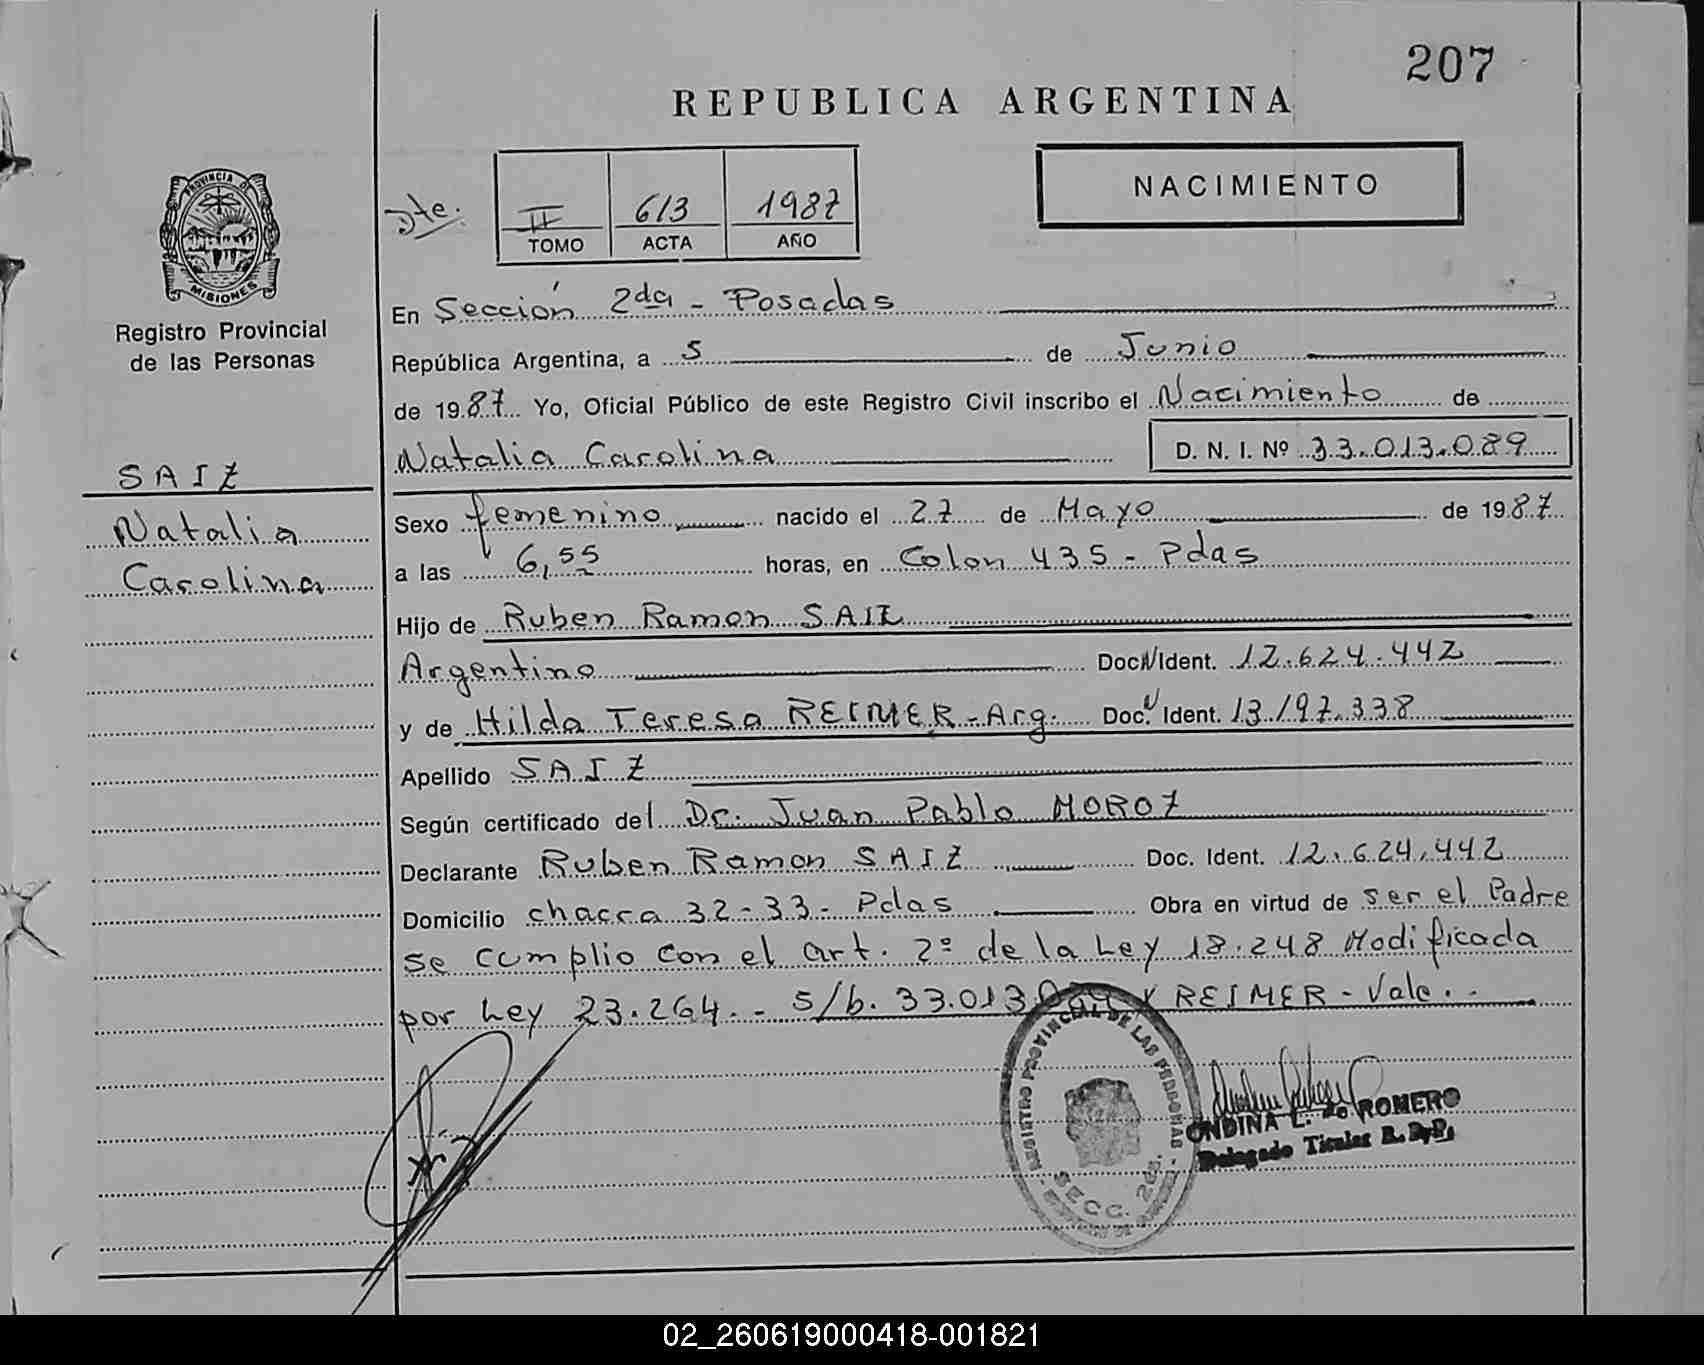 207
REPUBLICA ARGENTINA
NACIMIENTO
Dte.
II 613 1987
TOMO ACTA AÑO
PROVINCIA DE
MISIONES
Registro Provincial
de las Personas
SAIZ
Natalia
Carolina
En Sección 2da - Posadas
República Argentina, a 5 de Junio
de 1987 Yo, Oficial Público de este Registro Civil inscribo el Nacimiento de
Natalia Carolina D. N. I. Nº 33.013.089
Sexo femenino nacido el 27 de Mayo de 1987
a las 6,55 horas, en Colon 435 - Pdas
Hijo de Ruben Ramon SAIZ
Argentino Doc. Ident. 12.624.442
y de Hilda Teresa REIMER - Arg. Doc. Ident. 13.197.338
Apellido SAIZ
Según certificado del Dr. Juan Pablo MOROZ
Declarante Ruben Ramon SAIZ Doc. Ident. 12.624.442
Domicilio chacra 32-33 - Pdas Obra en virtud de ser el Padre
se cumplio con el art. 2º de la Ley 18.248 Modificada
por Ley 23.264. - s/b. 33.013.089 y REIMER - Vale. -
REGISTRO PROVINCIAL DE LAS PERSONAS
SECC. 2da.
ONDINA L. de ROMERO
Delegado Titular R. P. P.
02_260619000418-001821